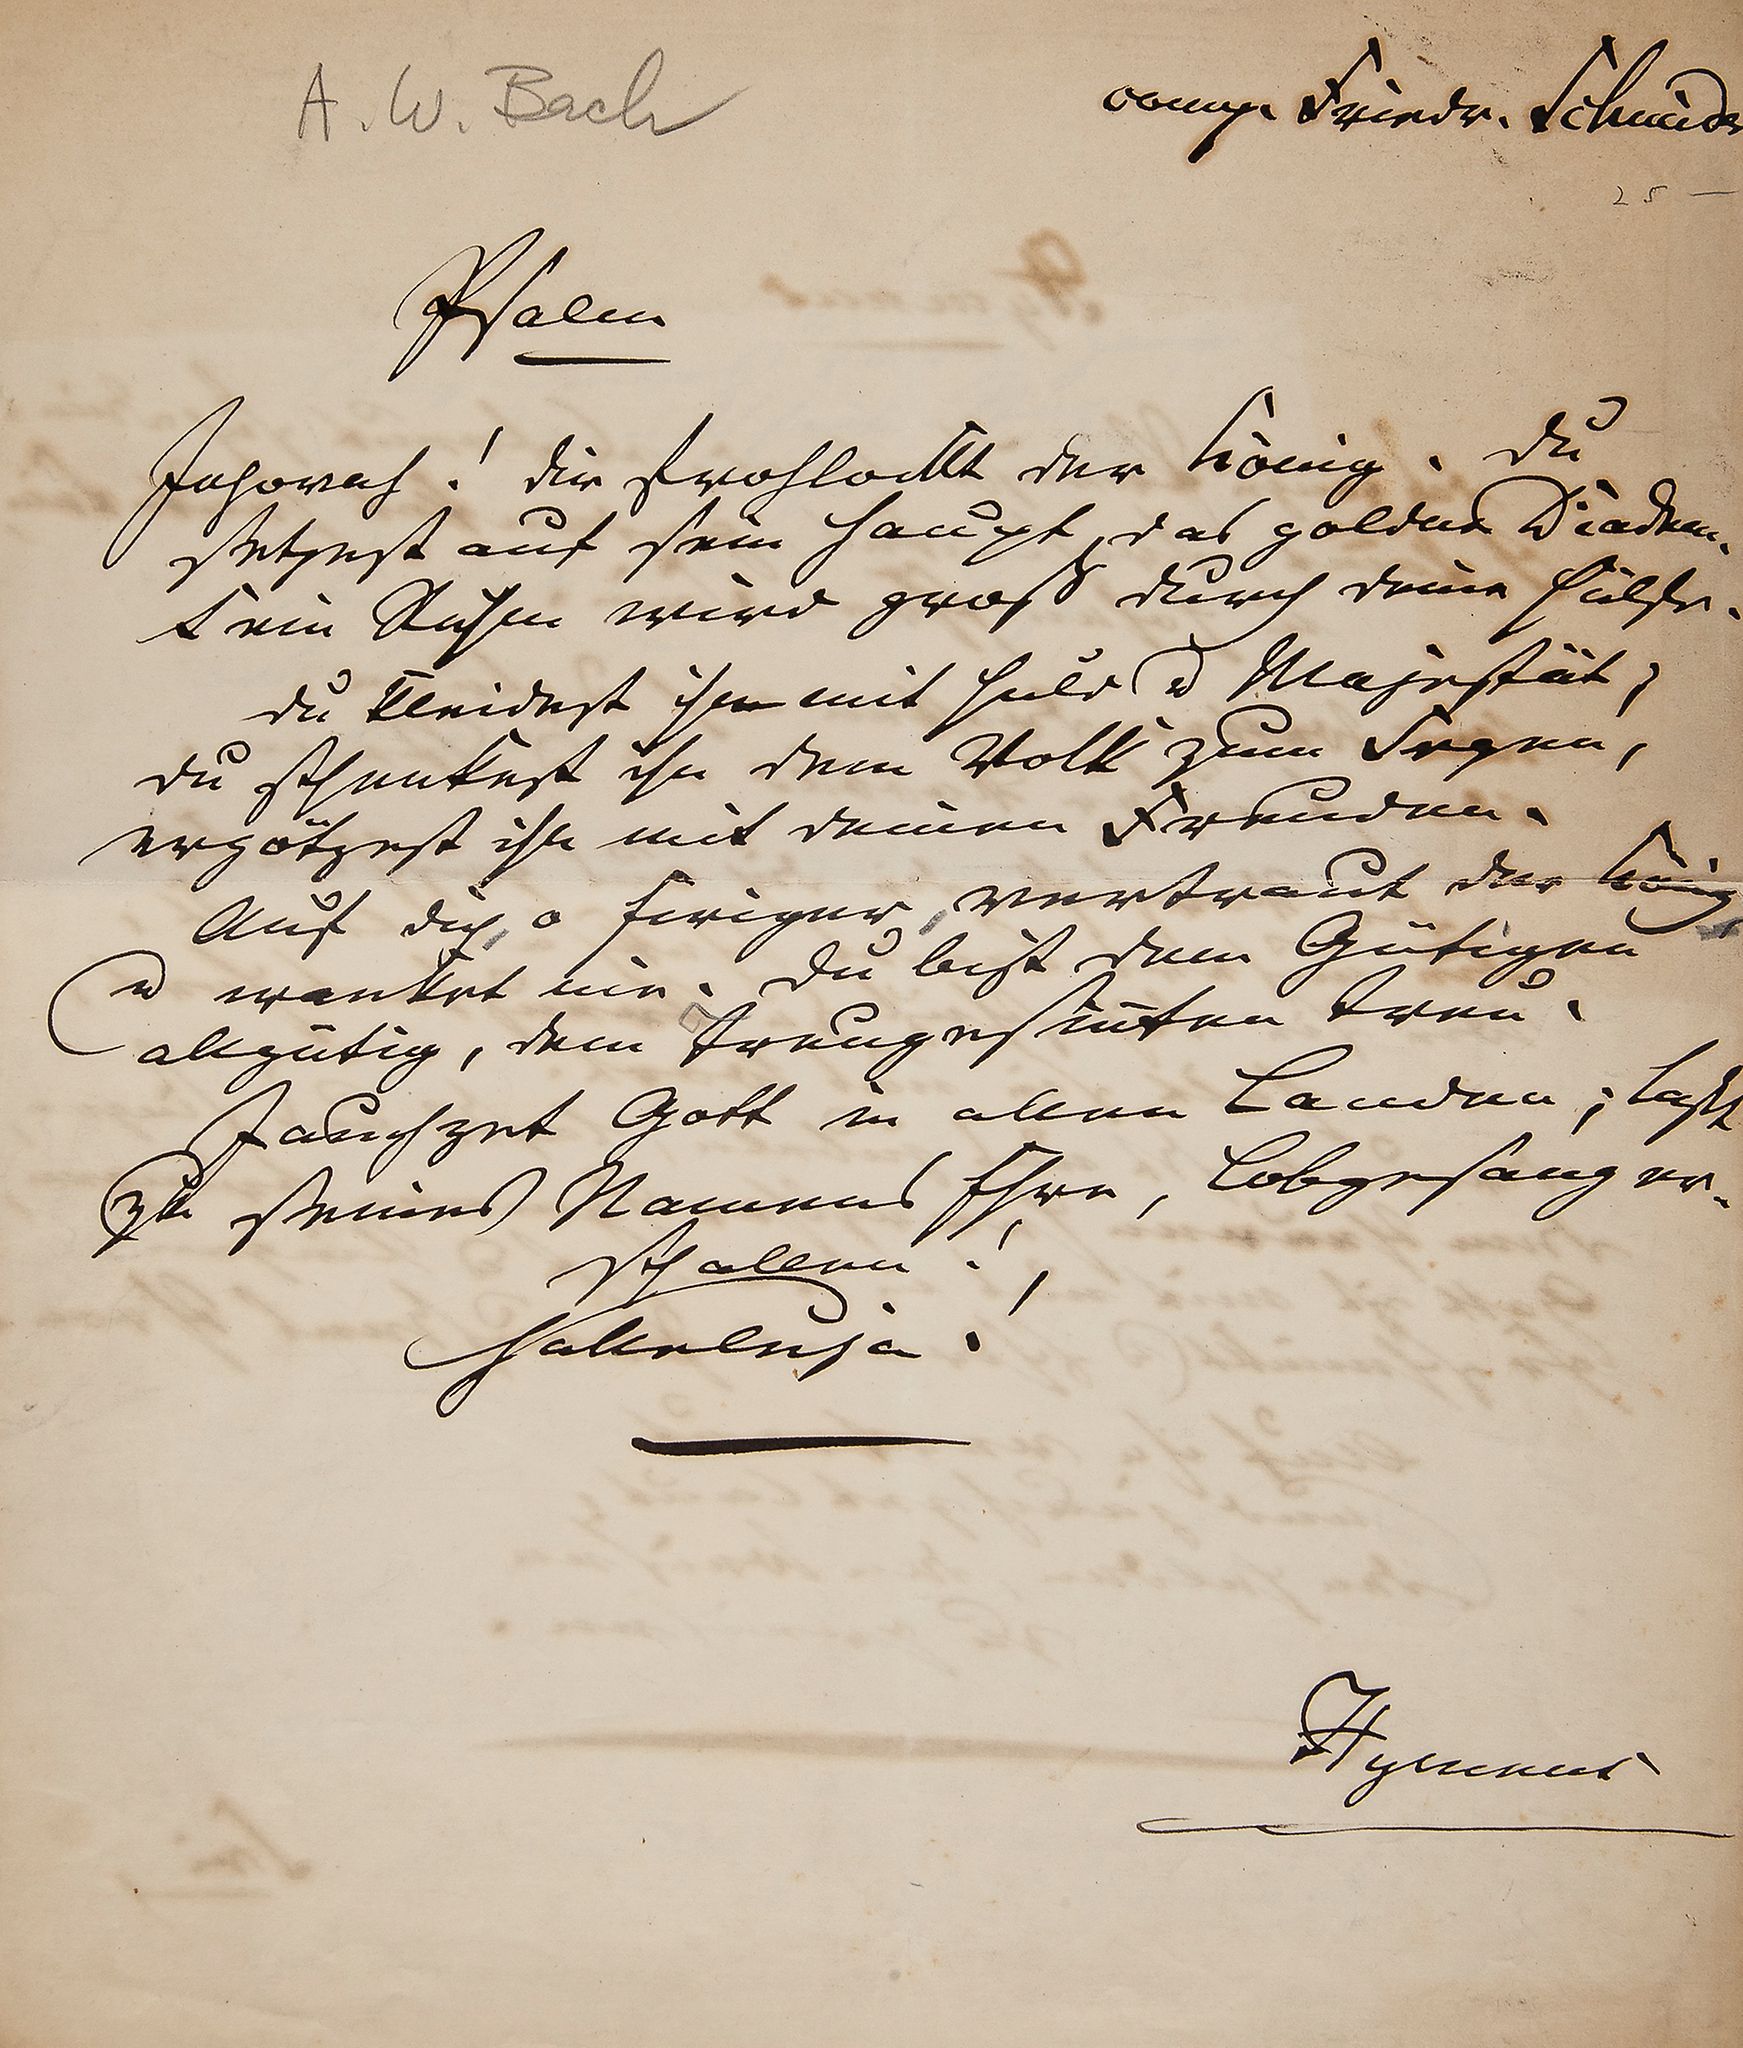 A. W. Bach
comp. Friedr. Schneider
25 —
Psalm
Jehovah! dir frohlockt der König. Du
setzest auf sein Haupt, das goldne Diadem.
Sein Ruhm wird groß durch deine Hülfe.
du kleidest ihn mit Huld u Majestät;
du schenkest ihn dem Volk zum Segen,
ergötzest ihn mit deinen Freuden.
Auf dich, o Heiliger, vertraut der König
u wanket nie. Du bist dem Gütigen
allgütig, dem Treugesinnten treu.
Jauchzet Gott in allen Landen; laßt
zu seines Namens Ehre, Lobgesang er-
schallen!
Halleluja!
Hymnus